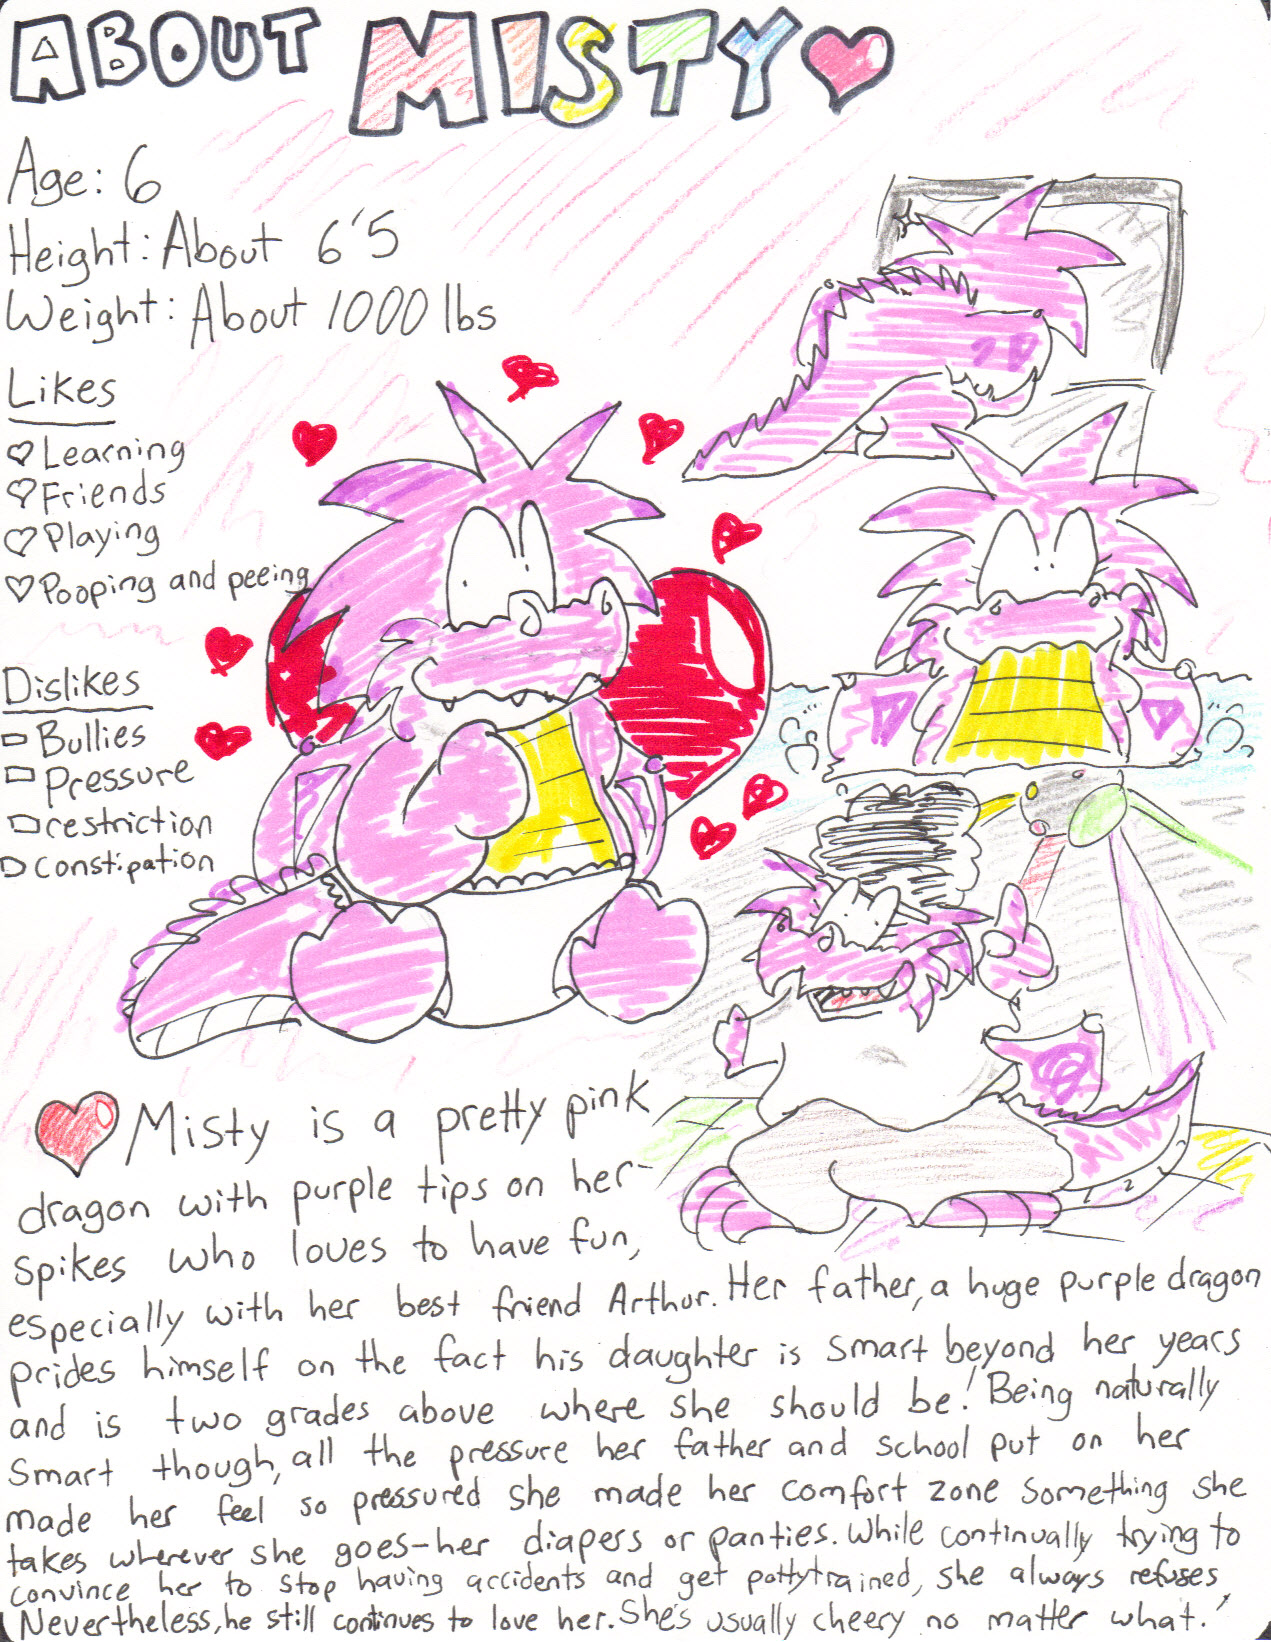 ABOUT MISTY
Age: 6
Height: About 6'5
Weight: About 1000 lbs
Likes
Learning
Friends
Playing
Pooping and peeing
Dislikes
Bullies
Pressure
restriction
constipation
Misty is a pretty pink
dragon with purple tips on her
spikes who loves to have fun,
especially with her best friend Arthur. Her father, a huge purple dragon
prides himself on the fact his daughter is smart beyond her years
and is two grades above where she should be! Being naturally
smart though, all the pressure her father and school put on her
made her feel so pressured she made her comfort zone something she
takes wherever she goes-her diapers or panties. While continually trying to
convince her to stop having accidents and get pottytrained, she always refuses.
Nevertheless, he still continues to love her. She's usually cheery no matter what!